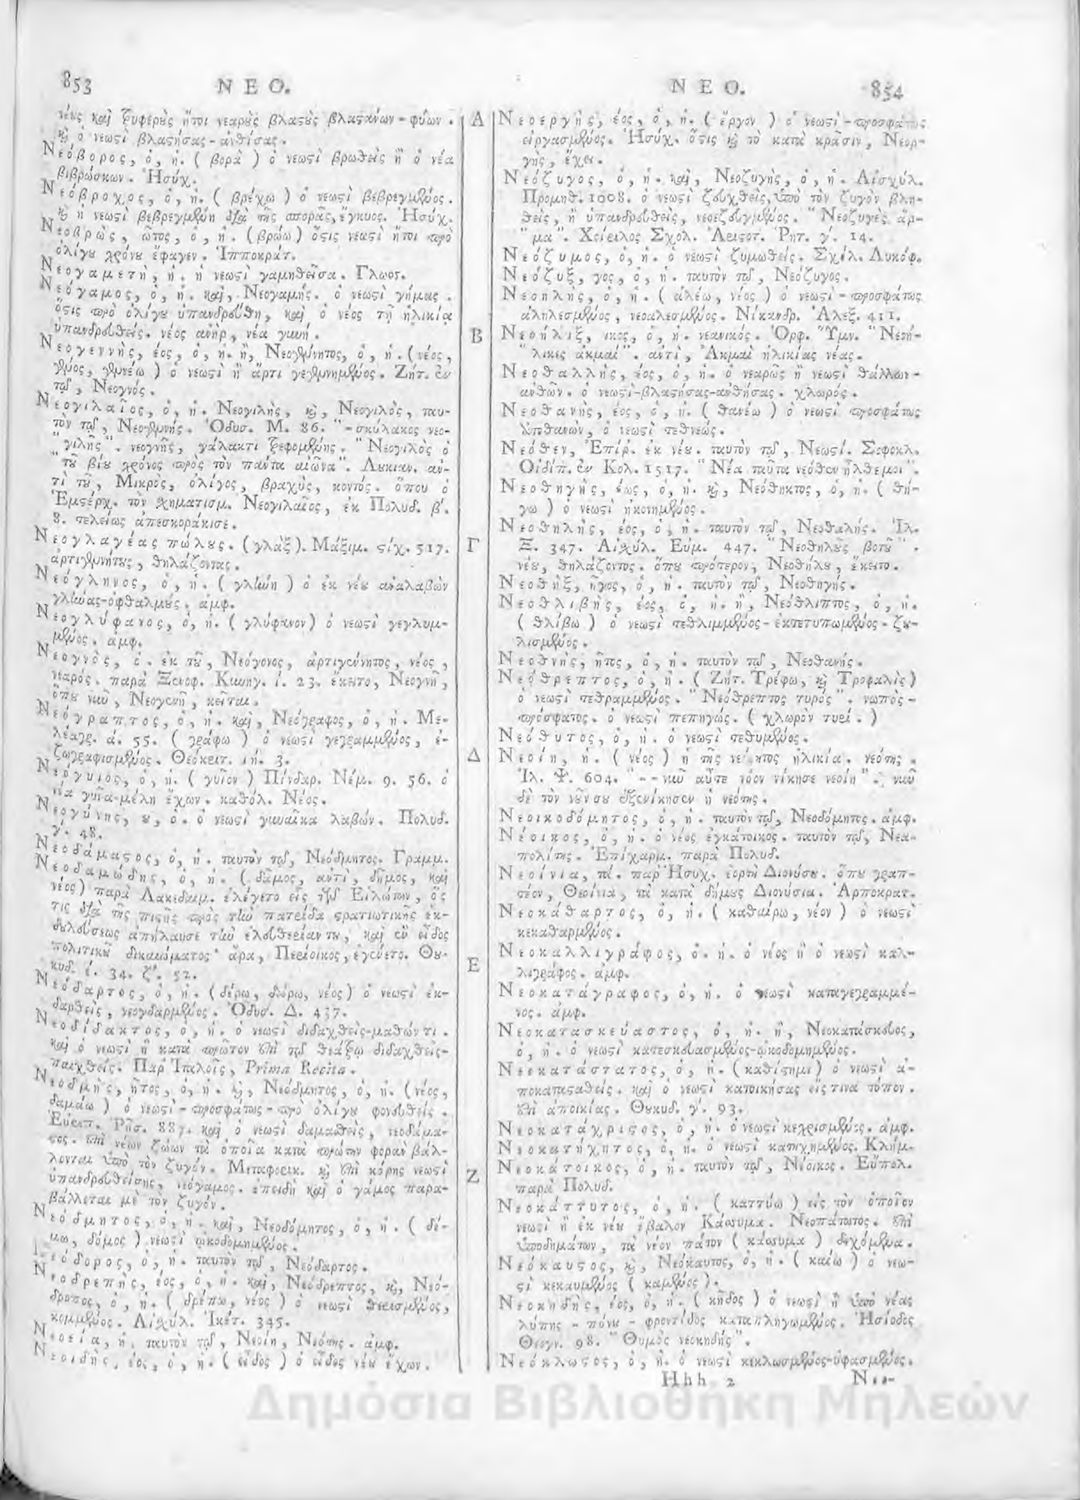 853 ΝΕΟ.
νέες καὶ τρυφερὲς ἤτοι νεαρὲς βλαςὲς βλαςάνων - φύων.
καὶ ὁ νεωςὶ βλαςήσας - ἀνθίσας.
Νεόβορος, ὁ, ἡ. ( βορὰ ) ὁ νεωςὶ βρωθεὶς ἢ ὁ νέα
βιβρώσκων. Ἡσύχ.
Νεόβροχος, ὁ, ἡ. ( βρέχω ) ὁ νεωςὶ βεβρεγμένος.
καὶ ἡ νεωςὶ βεβρεγμένη διὰ τῆς σπορᾶς, ἔγκυος. Ἡσύχ.
Νεοβρὼς, ῶτος, ὁ, ἡ. (βρώω) ὅςις νεωςὶ ἤτοι πρὸ
ὀλίγου χρόνου ἔφαγεν. Ἱπποκρατ.
Νεογαμετὴ, ἡ. ἡ νεωςὶ γαμηθεῖσα. Γλωσσ.
Νεόγαμος, ὁ, ἡ. καὶ, Νεογαμής. ὁ νεωςὶ γήμας.
ὅςις πρὸ ὀλίγου ὑπανδρεύθη, καὶ ὁ νέος τῇ ἡλικίᾳ
ὑπανδρευθείς. νέος ἀνὴρ, νέα γυνή.
Νεογεννὴς, έος, ὁ, ἡ. ἢ, Νεογέννητος, ὁ, ἡ. (νέος,
γένος, γεννέω ) ὁ νεωςὶ ἢ ἄρτι γεγεννημένος. Ζήτ. ἐν
τῷ, Νεογνός.
Νεογιλαῖος, ὁ, ἡ. Νεογιλὴς, καὶ, Νεογιλὸς, ταυ-
τὸν τῷ, Νεογεννής. Ὀδυσ. Μ. 86. "-σκύλακος νεο-
" γιλῆς". νεογνῆς, γάλακτι τρεφομένης. "Νεογιλὸς ὁ
" τοῦ βίου χρόνος πρὸς τὸν πάντα αἰῶνα". Λυκιαν. ἀν-
τὶ τοῦ, Μικρὸς, ὀλίγος, βραχὺς, κοντός. ὅπου ὁ
Ἐμςέρχ. τὸν χηματισμ. Νεογιλαῖος, ἐκ Πολυδ. β'.
8. τελείως ἀπεσκοράκισε.
Νεογλαγέας πώλους. (γλάξ). Μάξιμ. ςίχ. 517.
ἀρτιγεννήτους, θηλάζοντας.
Νεόγληνος, ὁ, ἡ. ( γλήνη ) ὁ ἐκ νέου ἀναλαβὼν
γλήνας-ὀφθαλμούς. ἀμφ.
Νεογλύφανος, ὁ, ἡ. ( γλύφανον) ὁ νεωςὶ γεγλυμ-
μένος. ἀμφ.
Νεογνὸς, ὁ. ἐκ τοῦ, Νεόγονος, ἀρτιγέννητος, νέος,
νεαρός. παρὰ Ξενοφ. Κυνηγ. ί. 23. ἔκειτο, Νεογνῆ,
ὅπου νῦν, Νεογενῆ, κεῖται.
Νεόγραπτος, ὁ, ἡ. καὶ, Νεόγραφος, ὁ, ἡ. Με-
λέαγρ. ά. 55. ( γράφω ) ὁ νεωςὶ γεγραμμένος, ἐ-
ζωγραφισμένος. Θεόκριτ. ιή. 3.
Νεόγυιος, ὁ, ἡ. ( γυῖον ) Πίνδαρ. Νέμ. 9. 56. ὁ
νέα γυῖα-μέλη ἔχων. καθόλ. Νέος.
Νεογύνης, ου, ὁ. ὁ νεωςὶ γυναῖκα λαβών. Πολυδ.
γ'. 48.
Νεοδάμαςος, ὁ, ἡ. ταυτὸν τῷ, Νεόδμητος. Γραμμ.
Νεοδαμώδης, ὁ, ἡ. ( δᾶμος, ἀντὶ, δῆμος, καὶ
νέος) παρὰ Λακεδαιμ. ἐλέγετο εἷς τῶν Εἱλώτων, ὅς
τις διὰ τῆς πίςης πρὸς τὴν πατρίδα ςρατιωτικῆς ἐκ-
δουλεύσεως ἀπήλαυσε τὴν ἐλευθερίαν του, καὶ ἓν εἶδος
πολιτικῶν δικαιώματος· ἄρα, Περίοικος, ἐγένετο. Θου-
κυδ. έ. 34. ζ'. 52.
Νεόδαρτος, ὁ, ἡ. (δέρω, δάρω, νέος) ὁ νεωςὶ ἐκ-
δαρθεὶς, νεογδαρμένος. Ὀδυσ. Δ. 437.
Νεοδίδακτος, ὁ, ἡ. ὁ νεωςὶ διδαχθεὶς-μαθών τι.
καὶ ὁ νεωςὶ ἢ κατὰ πρῶτον ἐπὶ τῷ θεάτρῳ διδαχθεὶς-
παιχθείς. Παρ' Ἰταλοῖς, Prima Recita.
Νεοδμὴς, ῆτος, ὁ, ἡ. καὶ, Νεόδμητος, ὁ, ἡ. (νέος,
δαμάω ) ὁ νεωςὶ - προσφάτως - πρὸ ὀλίγου φονευθείς.
Εὐριπ. Ῥῆσ. 887. καὶ ὁ νεωςὶ δαμασθεὶς, νεοδάμα-
ςος. ἐπὶ νέων ζώων τὰ ὁποῖα κατὰ πρώτην φορὰν βάλ-
λονται ὑπὸ τὸν ζυγόν. Μεταφορικ. καὶ ἐπὶ κόρης νεωςὶ
ὑπανδρευθείσης, νεόγαμος. ἐπειδὴ καὶ ὁ γάμος παρα-
βάλλεται μὲ τὸν ζυγόν.
Νεόδμητος, ὁ, ἡ. καὶ, Νεοδόμητος, ὁ, ἡ. ( δέ-
μω, δόμος ) νεωςὶ ᾠκοδομημένος.
Νεόδορος, ὁ, ἡ. ταυτὸν τῷ, Νεόδαρτος.
Νεοδρεπὴς, έος, ὁ, ἡ. καὶ, Νεόδρεπτος, καὶ, Νεό-
δροπος, ὁ, ἡ. ( δρέπω, νέος ) ὁ νεωςὶ θερισμένος,
κομμένος. Αἰσχύλ. Ἱκέτ. 345.
Νεοεία, ἡ. ταυτὸν τῷ, Νεοίη, Νεότης. ἀμφ.
Νεοειδὴς, έος, ὁ, ἡ. ( εἶδος ) ὁ εἶδος νέου ἔχων.
Α
Β
Γ
Δ
Ε
Ζ
ΝΕΟ. 854
Νεοεργὴς, έος, ὁ, ἡ. ( ἔργον ) ὁ νεωςὶ - προσφάτως
εἰργασμένος. Ἡσύχ. ὅςις καὶ τὸ κατὰ κρᾶσιν, Νεουρ-
γὴς, ἔχει.
Νεόζυγος, ὁ, ἡ. καὶ, Νεοζυγὴς, ὁ, ἡ. Αἰσχύλ.
Προμηθ. 1008. ὁ νεωςὶ ζευχθεὶς, ὑπὸ τὸν ζυγὸν βλη-
θεὶς, ἢ ὑπανδρευθεὶς, νεοεζευγμένος. "Νεοζυγὲς ἅρ-
" μα". Χείριλος Σχολ. Ἀριςοτ. Ῥητ. γ'. 14.
Νεόζυμος, ὁ, ἡ. ὁ νεωςὶ ζυμωθείς. Σχόλ. Λυκόφ.
Νεόζυξ, γος, ὁ, ἡ. ταυτὸν τῷ, Νεόζυγος.
Νεοηλὴς, ὁ, ἡ. ( ἀλέω, νέος ) ὁ νεωςὶ - προσφάτως
ἀληλεσμένος, νεοαλεσμένος. Νίκανδρ. Ἀλεξ. 411.
Νεοῆλιξ, ικος, ὁ, ἡ. νεανικός. Ὀρφ. Ὕμν. "Νεοή-
" λικες ἀκμαί". ἀντὶ, Ἀκμαὶ ἡλικίας νέας.
Νεοθαλλὴς, έος, ὁ, ἡ. ὁ νεαρῶς ἢ νεωςὶ θάλλων-
ἀνθῶν. ὁ νεωςὶ-βλαςήσας-ἀνθήσας. χλωρός.
Νεοθανὴς, έος, ὁ, ἡ. ( θανέω ) ὁ νεωςὶ προσφάτως
ἀποθανὼν, ὁ νεωςὶ τεθνεώς.
Νεόθεν, Ἐπίρ. ἐκ νέου. ταυτὸν τῷ, Νεωςί. Σοφοκλ.
Οἰδίπ. ἐν Κολ. 1517. "Νέα ταῦτα νεόθεν ἦλθέ μοι".
Νεοθηγὴς, έως, ὁ, ἡ. καὶ, Νεόθηκτος, ὁ, ἡ. ( θή-
γω ) ὁ νεωςὶ ἠκονημένος.
Νεοθηλὴς, έος, ὁ, ἡ. ταυτὸν τῷ, Νεοθαλής. Ἰλ.
Ξ. 347. Αἰσχύλ. Εὐμ. 447. "Νεοθηλοῦς βοτοῦ".
νέου, θηλάζοντος. ὅπου πρότερον, Νεοθήλου, ἔκειτο.
Νεοθὴξ, ῆγος, ὁ, ἡ. ταυτὸν τῷ, Νεοθηγής.
Νεοθλιβὴς, έος, ὁ, ἡ. ἢ, Νεόθλιπτος, ὁ, ἡ.
( θλίβω ) ὁ νεωςὶ τεθλιμμένος - ἐκτετυπωμένος - ζου-
λισμένος.
Νεοθνὴς, ῆτος, ὁ, ἡ. ταυτὸν τῷ, Νεοθανής.
Νεόθρεπτος, ὁ, ἡ. ( Ζήτ. Τρέφω, καὶ Τροφαλίς)
ὁ νεωςὶ τεθραμμένος. "Νεόθρεπτος τυρός". νωπὸς -
πρόσφατος. ὁ νεωςὶ πεπηγώς. ( χλωρὸν τυρί. )
Νεόθυτος, ὁ, ἡ. ὁ νεωςὶ τεθυμένος.
Νεοίη, ἡ. ( νέος ) ἡ τῆς νεότητος ἡλικία. νεότης.
Ἰλ. Ψ. 604. "--νῦν αὖτε νόον νίκησε νεοίη". νῦν
δὲ τὸν νοῦν σου ἐξενίκησεν ἡ νεότης.
Νεοικοδόμητος, ὁ, ἡ. ταυτὸν τῷ, Νεοδόμητος. ἀμφ.
Νέοικος, ὁ, ἡ. ὁ νέος ἐγκάτοικος. ταυτὸν τῷ, Νεα-
πολίτης. Ἐπίχαρμ. παρὰ Πολυδ.
Νεοίνια, τά. παρ' Ἡσυχ. ἑορτὴ Διονύσου. ὅπου γραπ-
τέον, Θεοίνια, τὰ κατὰ δήμους Διονύσια. Ἁρποκρατ.
Νεοκάθαρτος, ὁ, ἡ. ( καθαίρω, νέον ) ὁ νεωςὶ
κεκαθαρμένος.
Νεοκαλλιγράφος, ὁ. ἡ. ὁ νέος ἢ ὁ νεωςὶ καλ-
λιγράφος. ἀμφ.
Νεοκατάγραφος, ὁ, ἡ. ὁ νεωςὶ καταγεγραμμέ-
νος. ἀμφ.
Νεοκατασκεύαστος, ὁ, ἡ. ἢ, Νεοκατάσκευος,
ὁ, ἡ. ὁ νεωςὶ κατεσκευασμένος-ᾠκοδομημένος.
Νεοκατάστατος, ὁ, ἡ. (καθίςημι) ὁ νεωςὶ ἀ-
ποκαταςαθείς. καὶ ὁ νεωςὶ κατοικήσας εἴς τινα τόπον.
ἐπὶ ἀποικίας. Θυκυδ. γ'. 93.
Νεοκατάχριςος, ὁ, ἡ. ὁ νεωςὶ κεχρισμένος. ἀμφ.
Νεοκατήχητος, ὁ, ἡ. ὁ νεωςὶ κατηχημένος. Κλήμ.
Νεοκάτοικος, ὁ, ἡ. ταυτὸν τῷ, Νέοικος. Εὔπολ.
παρὰ Πολυδ.
Νεοκάττυτος, ὁ, ἡ. ( καττύω ) εἰς τὸν ὁποῖον
νεωςὶ ἢ ἐκ νέου ἔβαλον Κάσσυμα. Νεοπάτωτος. ἐπὶ
ὑποδημάτων, τὰ νέον πάτον ( κάσσυμα ) δεχόμενα.
Νεόκαυςος, καὶ, Νεόκαυτος, ὁ, ἡ. ( καίω ) ὁ νεω-
ςὶ κεκαυμένος ( καμένος ).
Νεοκηδὴς, έος, ὁ, ἡ. ( κῆδος ) ὁ νεωςὶ ἢ ὑπὸ νέας
λύπης - πόνου - φροντίδος καταπληγωμένος. Ἡσίοδος
Θεογν. 98. "Θυμὸς νεοκηδής".
Νεόκλωςος, ὁ, ἡ. ὁ νεωςὶ κεκλωσμένος-ὑφασμένος.
Hhh 2 Νεο-
Δημόσια Βιβλιοθήκη Μηλεών